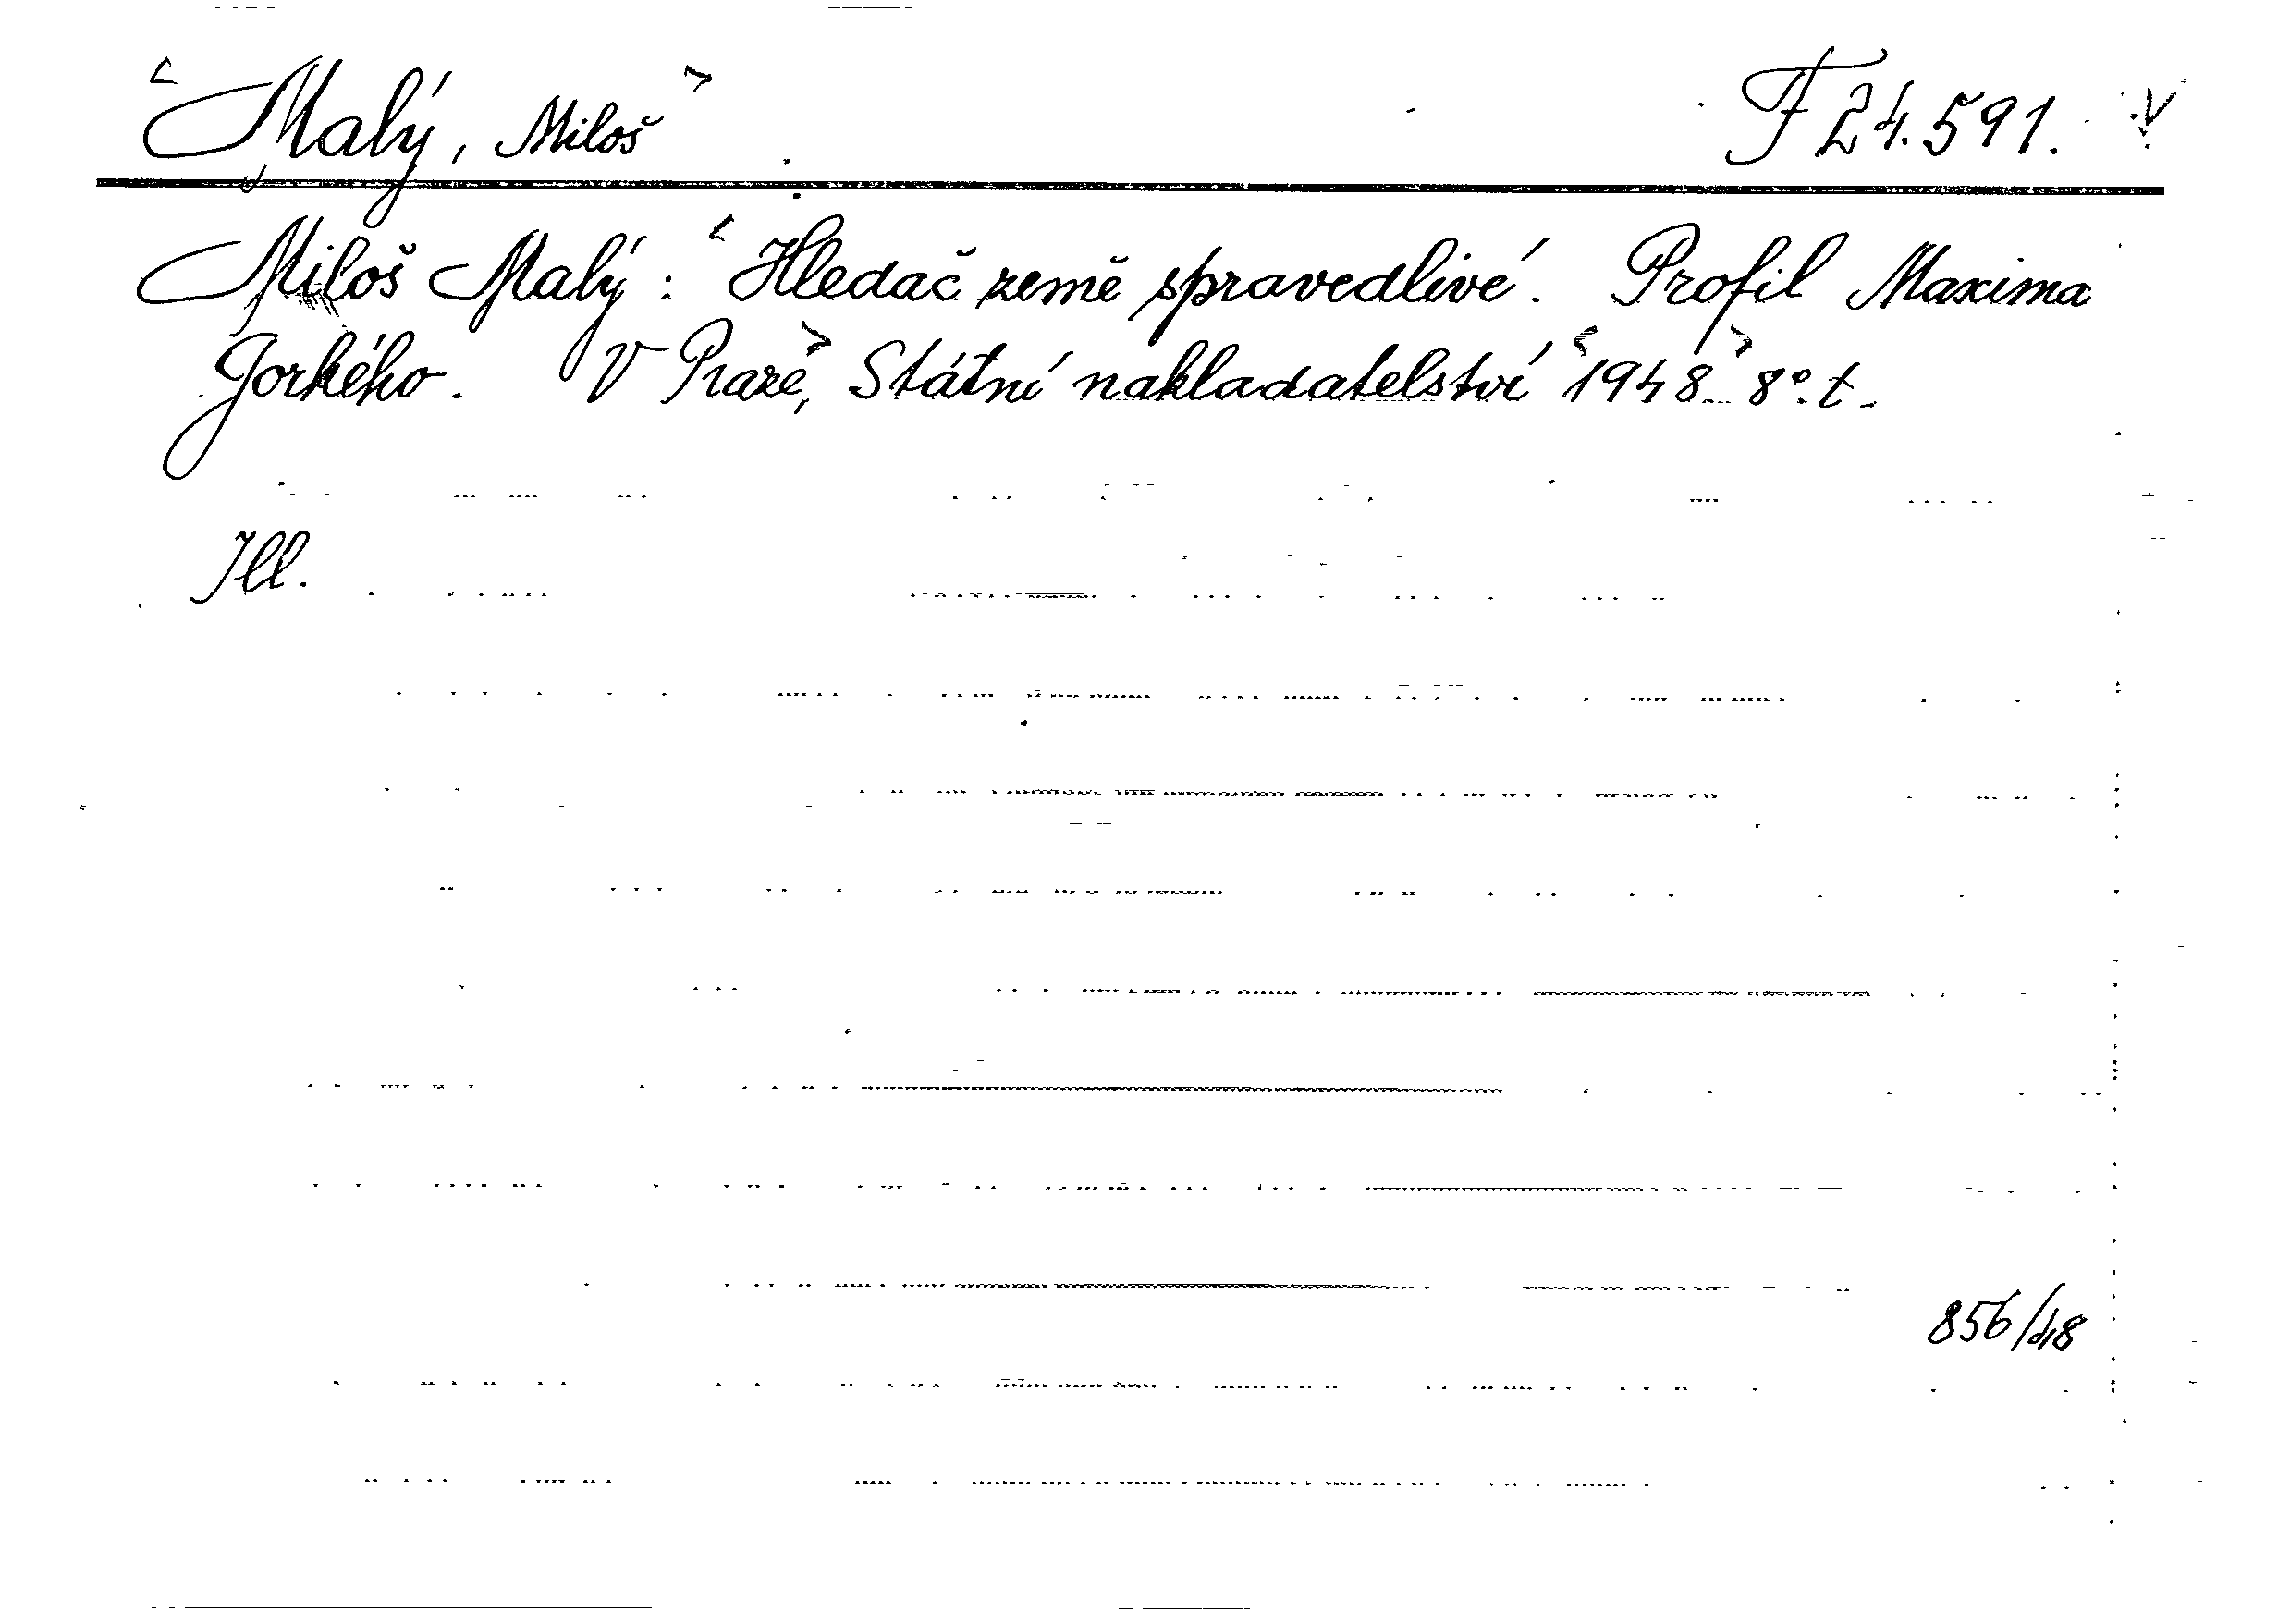 <Malý, Miloš> F 24.591. V
Miloš Malý: <Hledač země spravedlivé. Profil Maxima
Gorkého. V Praze>, Státní nakladatelství <1948> 8°. t.
Ill.
856/48